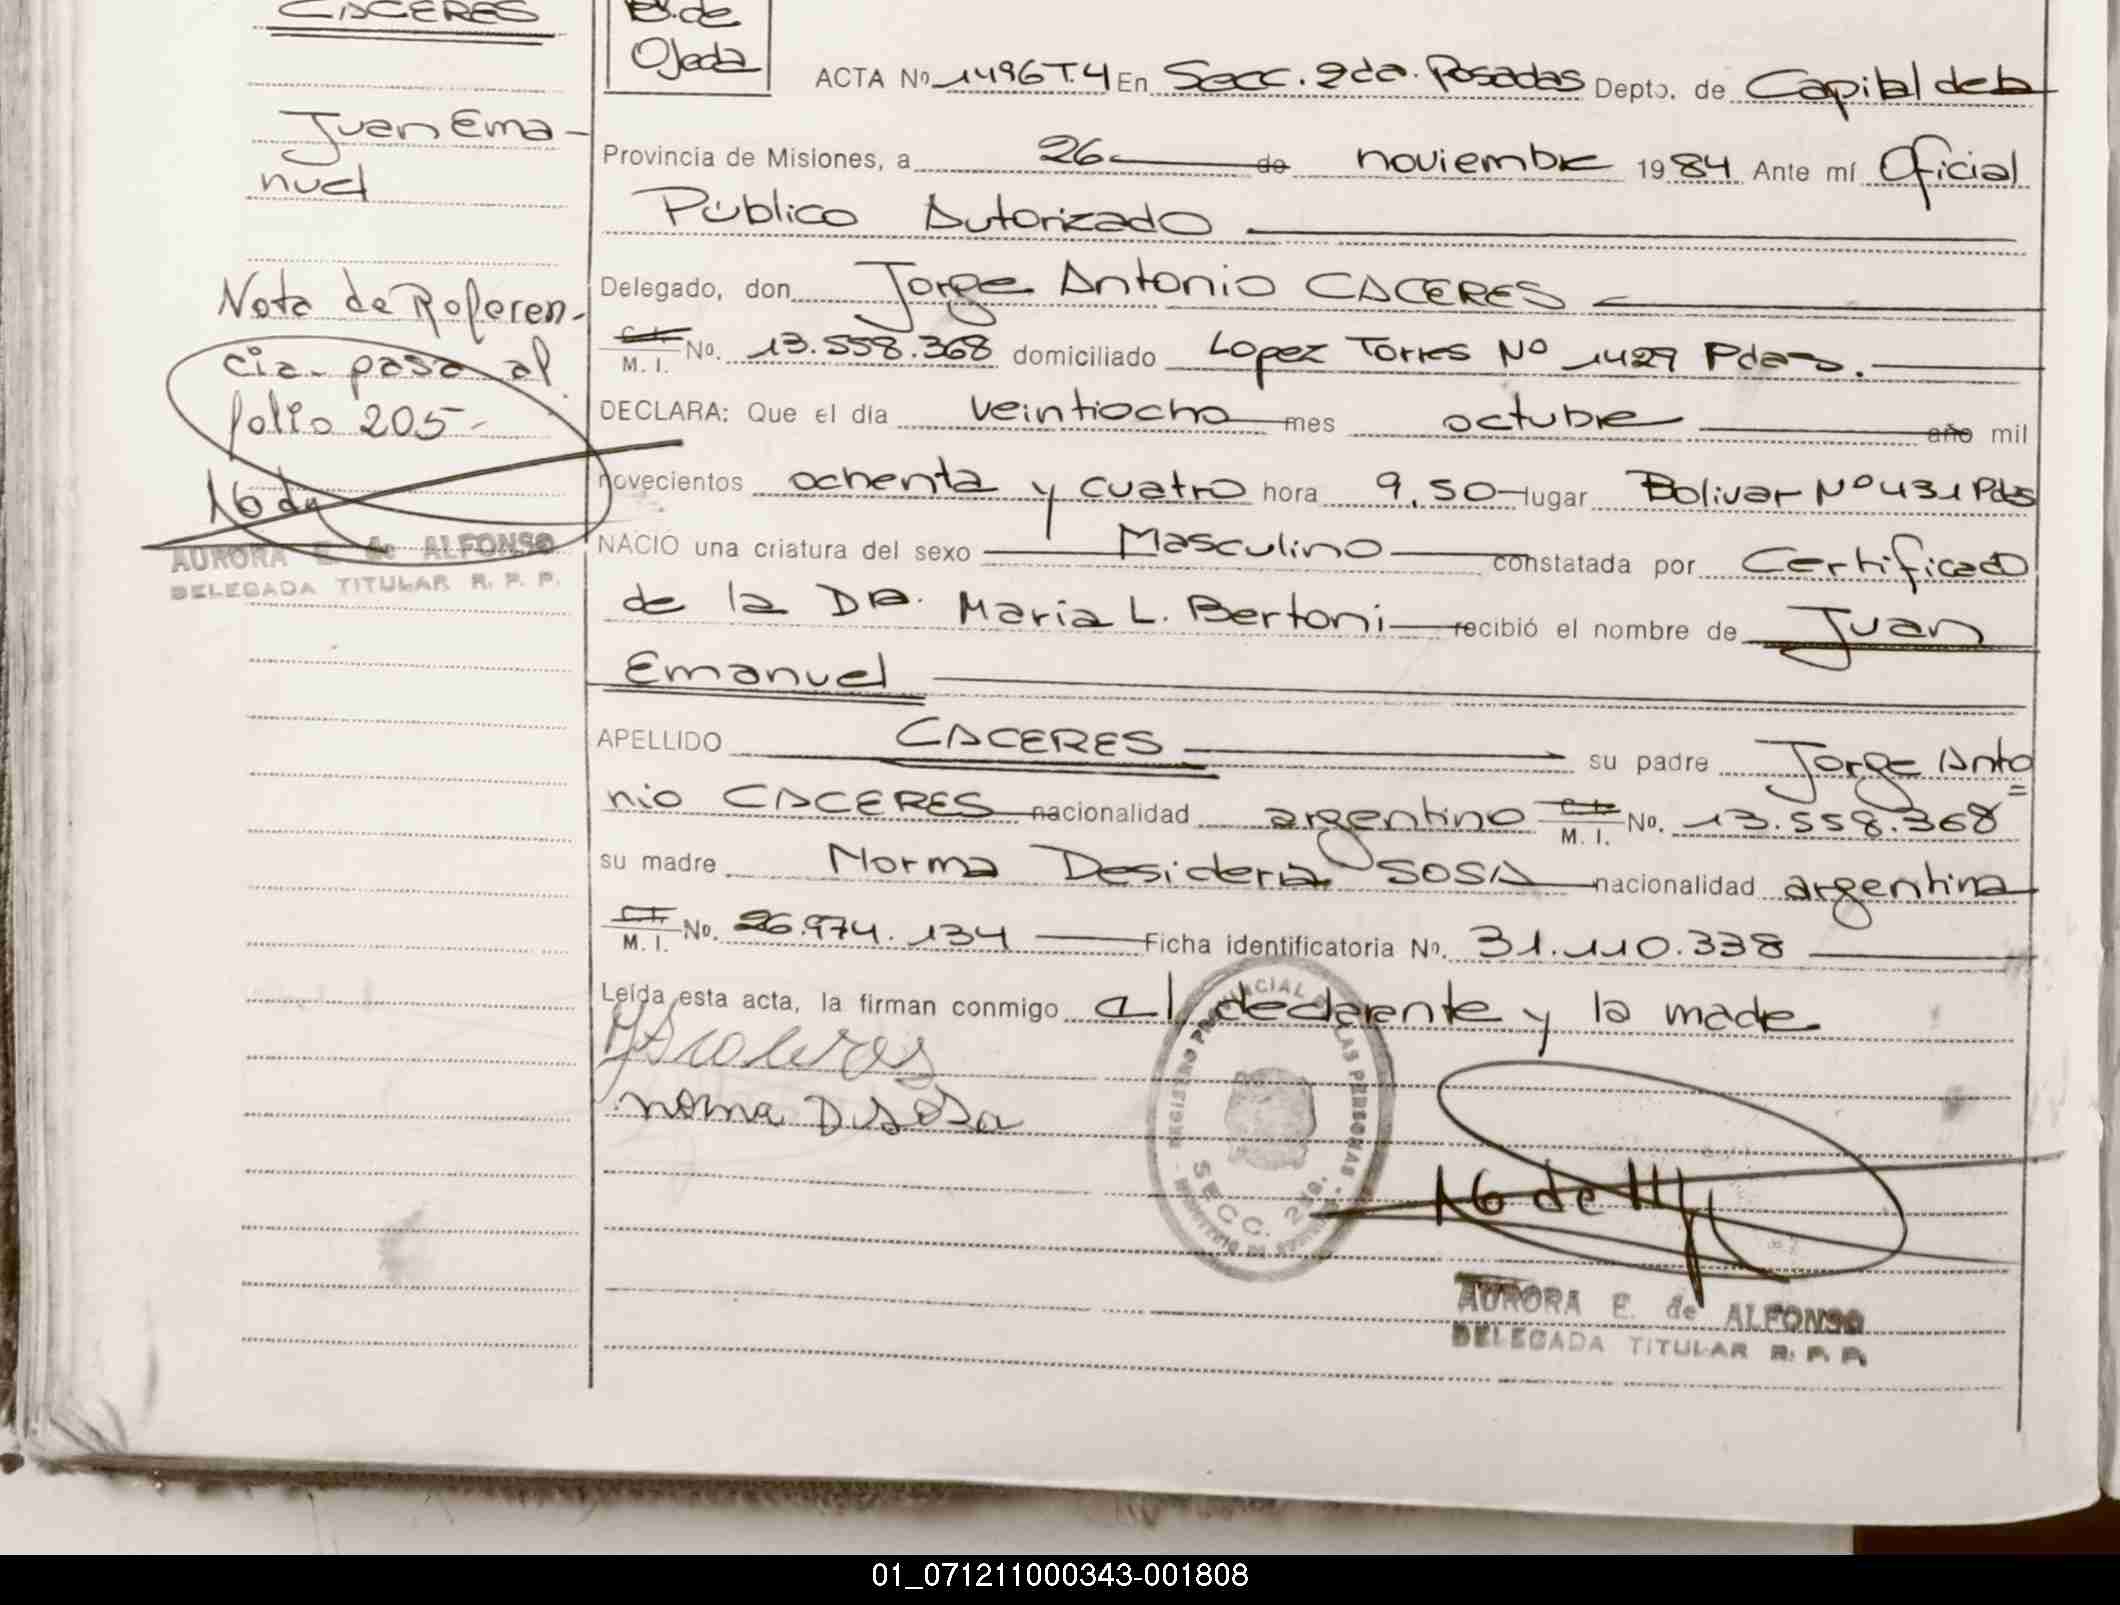 CACERES
Juan Ema-
nuel
Nota de Referen-
cia- pasa al
folio 205-
AURORA E. de ALFONSO
DELEGADA TITULAR R. P. P.
B. de
Ojeda
ACTA Nº 1496 T.4 En Secc. 2da. Posadas Depto. de Capital de la
Provincia de Misiones, a 26 de noviembre 1984 Ante mí Oficial
Público Autorizado
Delegado, don Jorge Antonio CACERES
C.I. M. I. No. 13.558.368 domiciliado Lopez Torres Nº 1429 Pdas.
DECLARA: Que el día veintiocho mes octubre año mil
novecientos ochenta y cuatro hora 9,50 lugar Bolivar Nº 431 Pdas
NACIO una criatura del sexo Masculino constatada por Certificado
de la DRA. Maria L. Bertoni recibió el nombre de Juan
Emanuel
APELLIDO CACERES su padre Jorge Anto
nio CACERES nacionalidad argentino C.I. M. I. No. 13.558.368
su madre Norma Desideria SOSA nacionalidad argentina
C.I. M. I. No. 26.974.134 Ficha identificatoria No. 31.110.338
Leída esta acta, la firman conmigo el declarante y la madre
Norma D Sosa
REGISTRO PROVINCIAL DE LAS PERSONAS
SECC. 2da.
AURORA E. de ALFONSO
DELEGADA TITULAR R. P. P.
01_071211000343-001808